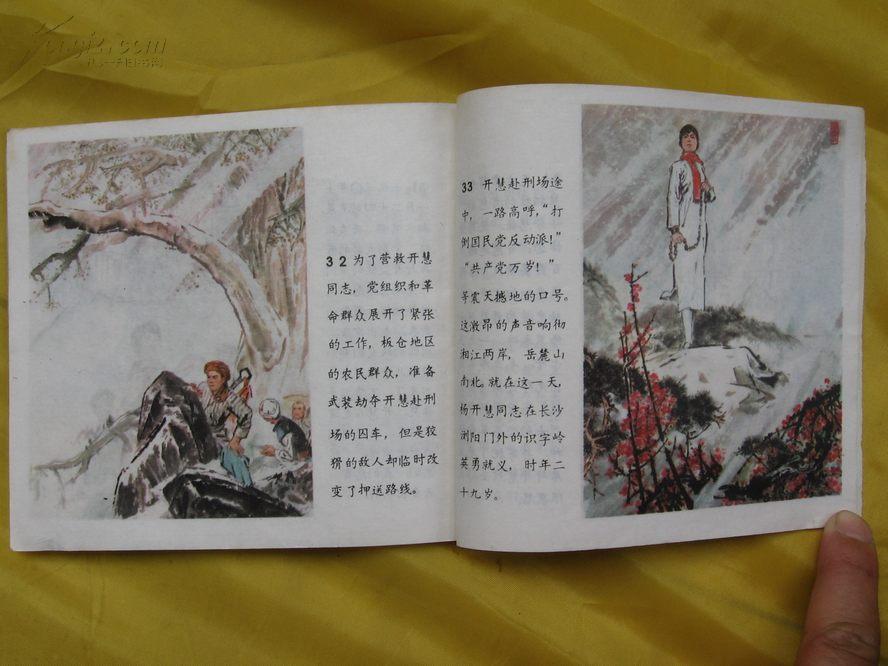 32 为了营救开慧
同志，党组织和革
命群众展开了紧张
的工作，板仓地区
的农民群众，准备
武装劫夺开慧赴刑
场的囚车，但是狡
猾的敌人却临时改
变了押送路线。
33 开慧赴刑场途
中，一路高呼，“打
倒国民党反动派！”
“共产党万岁！”
等震天撼地的口号。
这激昂的声音响彻
湘江两岸，岳麓山
南北。就在这一天，
杨开慧同志在长沙
浏阳门外的识字岭
英勇就义，时年二
十九岁。